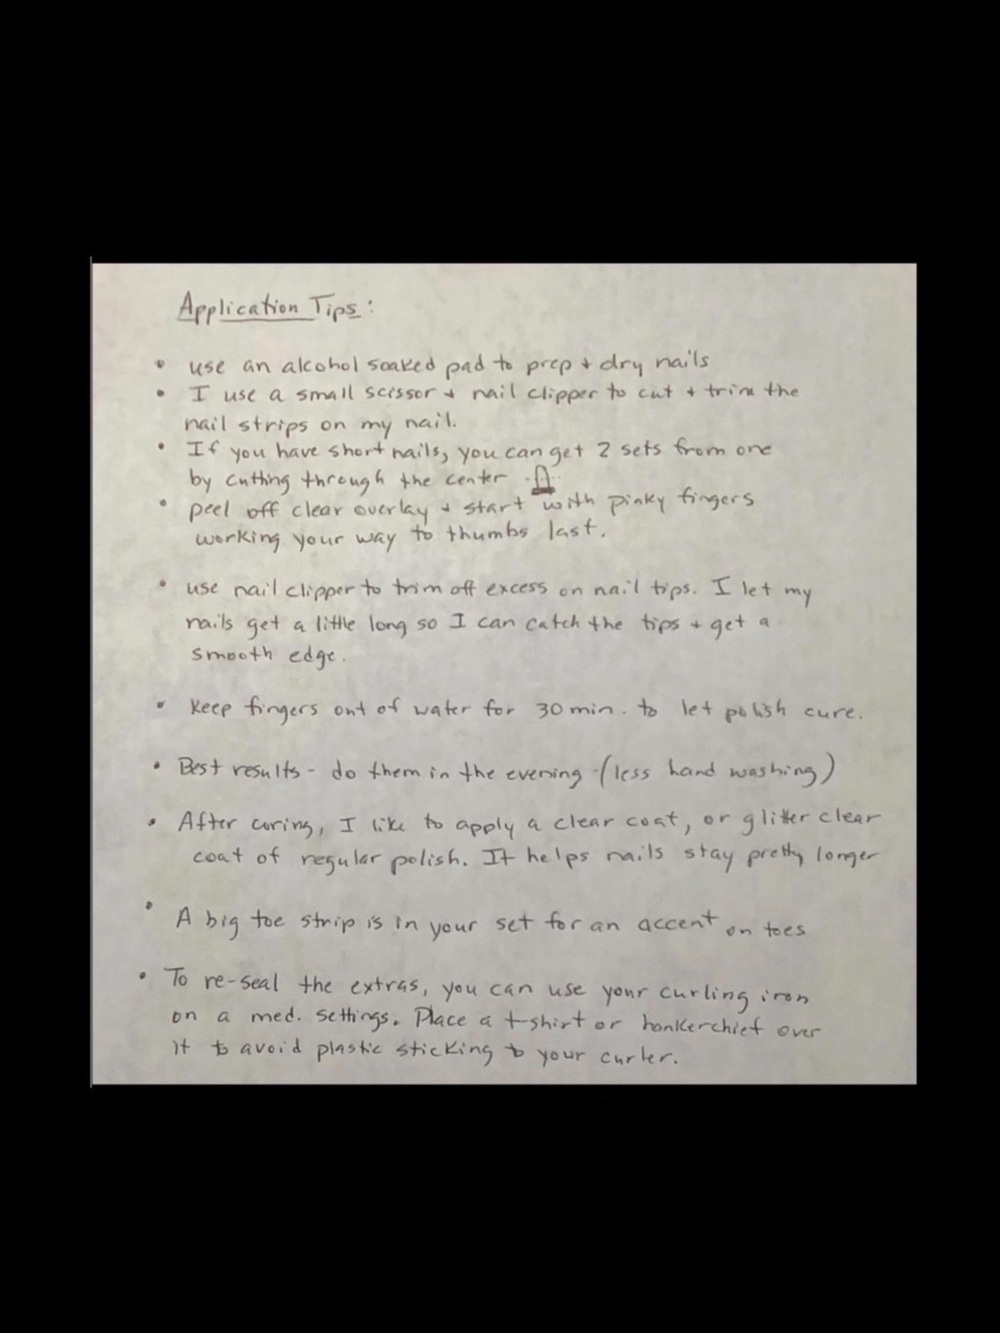 Application Tips:
• use an alcohol soaked pad to prep + dry nails
• I use a small scissor + nail clipper to cut + trim the
nail strips on my nail.
• If you have short nails, you can get 2 sets from one
by cutting through the center
• peel off clear overlay + start with pinky fingers
working your way to thumbs last.
• use nail clipper to trim off excess on nail tips. I let my
nails get a little long so I can catch the tips + get a
smooth edge.
• Keep fingers out of water for 30 min. to let polish cure.
• Best results - do them in the evening - (less hand washing)
• After curing, I like to apply a clear coat, or glitter clear
coat of regular polish. It helps nails stay pretty longer
• A big toe strip is in your set for an accent on toes
• To re-seal the extras, you can use your curling iron
on a med. settings. Place a t-shirt or hankerchief over
it to avoid plastic sticking to your curler.